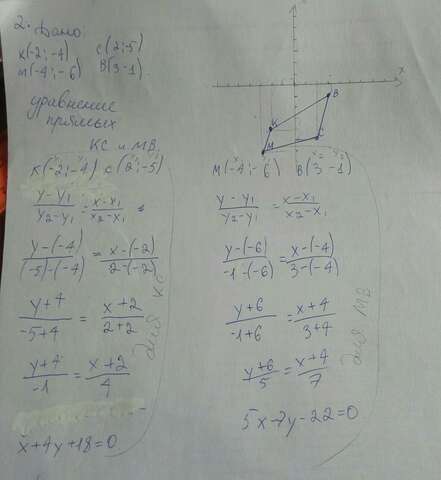 2. Дано:
K(-2; -4) C(2; -5)
M(-4; -6) B(3 -1).
уравнение
прямых
KC и MB.
x
B
K
C
M
K(-2; -4) C(2; -5)
y-y₁/y₂-y₁ = x-x₁/x₂-x₁ =
y-(-4)/(-5)-(-4) = x-(-2)/2-(-2)
y+4/-5+4 = x+2/2+2
y+4/-1 = x+2/4
x+4y+18=0
для KC
M(-4; -6) B(3 -1)
y-y₁/y₂-y₁ = x-x₁/x₂-x₁
y-(-6)/-1-(-6) = x-(-4)/3-(-4)
y+6/-1+6 = x+4/3+4
y+6/5 = x+4/7
5x-7y-22=0
для MB